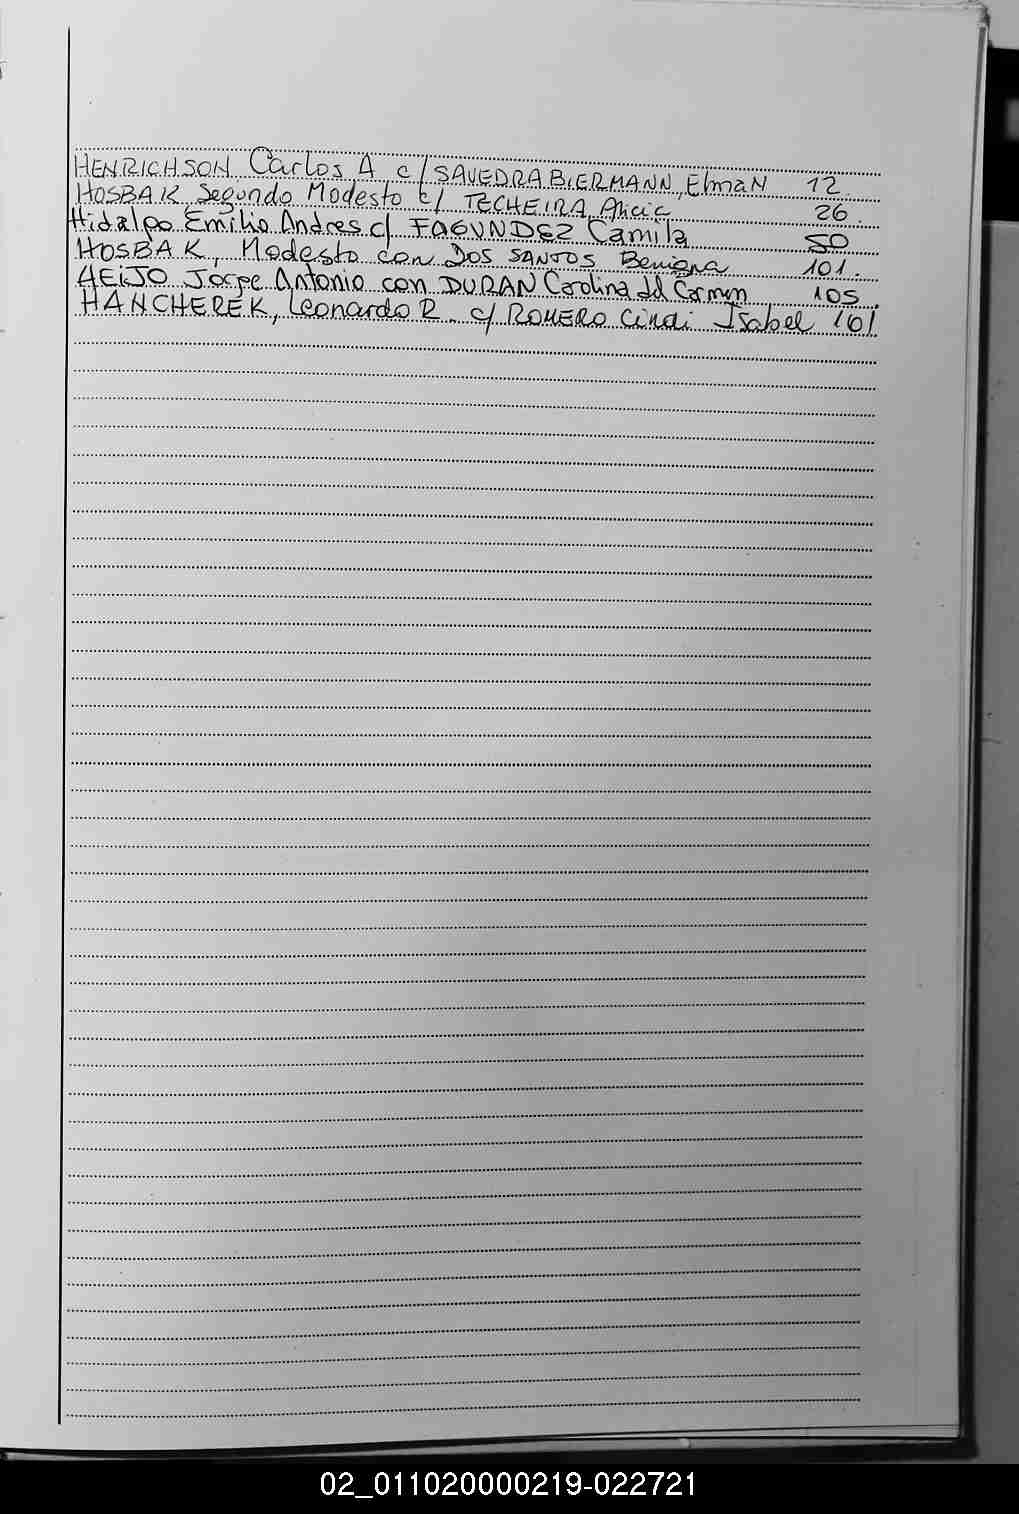 HENRICHSON Carlos A c/ SAVEDRA BIERMANN, ElmaN 12
HOSBAK Segundo Modesto c/ TECHEIRA Alicia 26
Hidalgo Emilio Andres c/ FAGUNDEZ Camila 50
HOSBAK, Modesto con DOS SANTOS Benigna 101.
HEiJO Jorge Antonio con DURAN Carolina del Carmen 105.
HANCHEREK, Leonardo R. c/ ROMERO Cindi Isabel 161
02_011020000219-022721